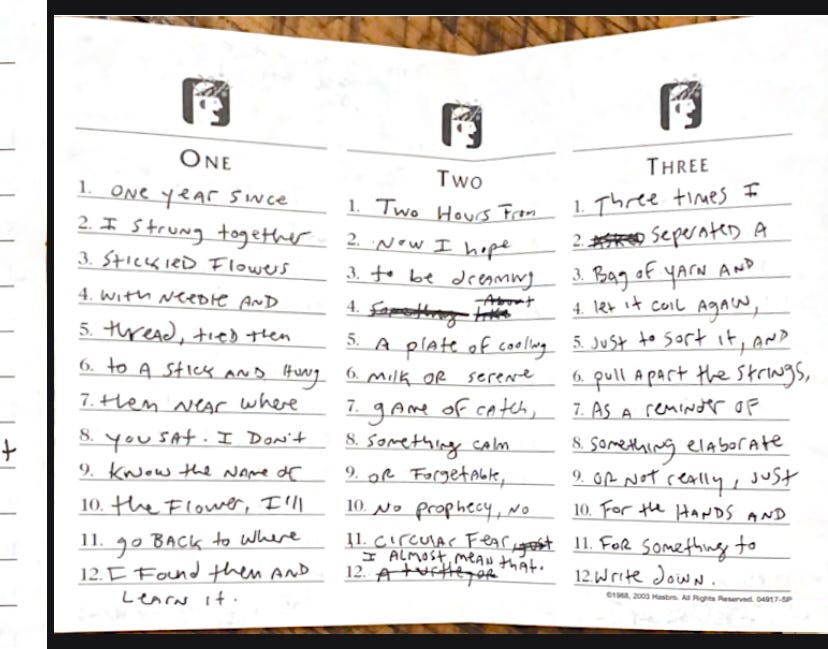 ONE
1. ONE year since
2. I strung together
3. STICKIED Flowers
4. with Needle AND
5. thread, tied then
6. to A stick AND Hung
7. them near where
8. you sat. I Don't
9. Know the Name of
10. the Flower, I'll
11. go BACK to where
12. I Found them AND
Learn it.
TWO
1. Two Hours From
2. Now I hope
3. to be dreaming
4. Something like About
5. A plate of cooling
6. milk OR serene
7. game of catch,
8. something calm
9. OR Forgetable,
10. No prophecy, No
11. circular Fear, just
I Almost mean that.
12. A turtle, or
THREE
1. Three times I
2. ASKED seperated A
3. Bag of yarn AND
4. let it coil AgaIN,
5. Just to sort it, AND
6. pull Apart the strings,
7. As a reminder of
8. something elaborate
9. OR Not really, Just
10. For the HANDS AND
11. For something to
12. Write down.
©1988, 2003 Hasbro. All Rights Reserved. 04917-SP
t